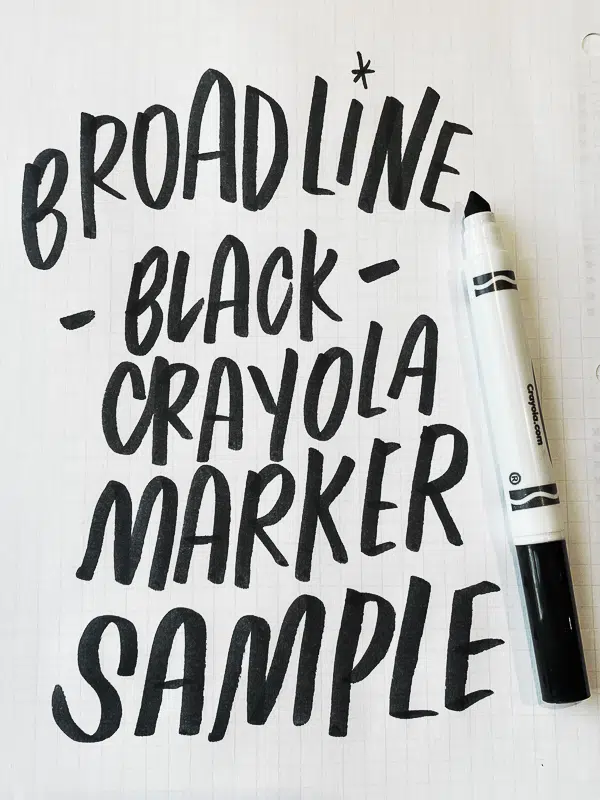 BROADLiNE
- BLACK -
CRAYOLA
MARKER
SAMPLE
Crayola.com
®